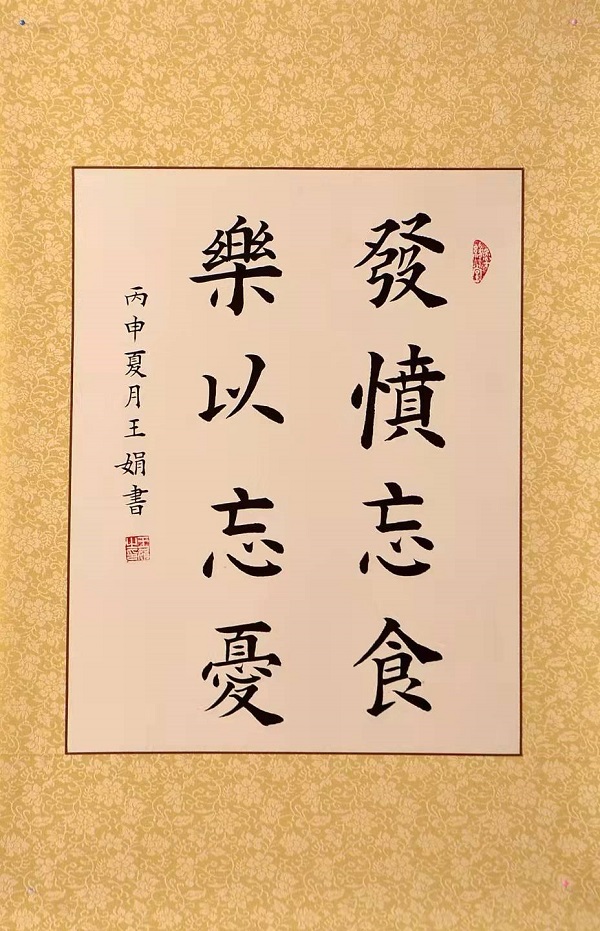 發憤忘食
樂以忘憂
丙申夏月王娟書